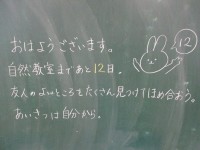 おはようございます。
12
自然教室まであと12日。
友人のよいところをたくさん見つけてほめ合おう。
あいさつは自分から。